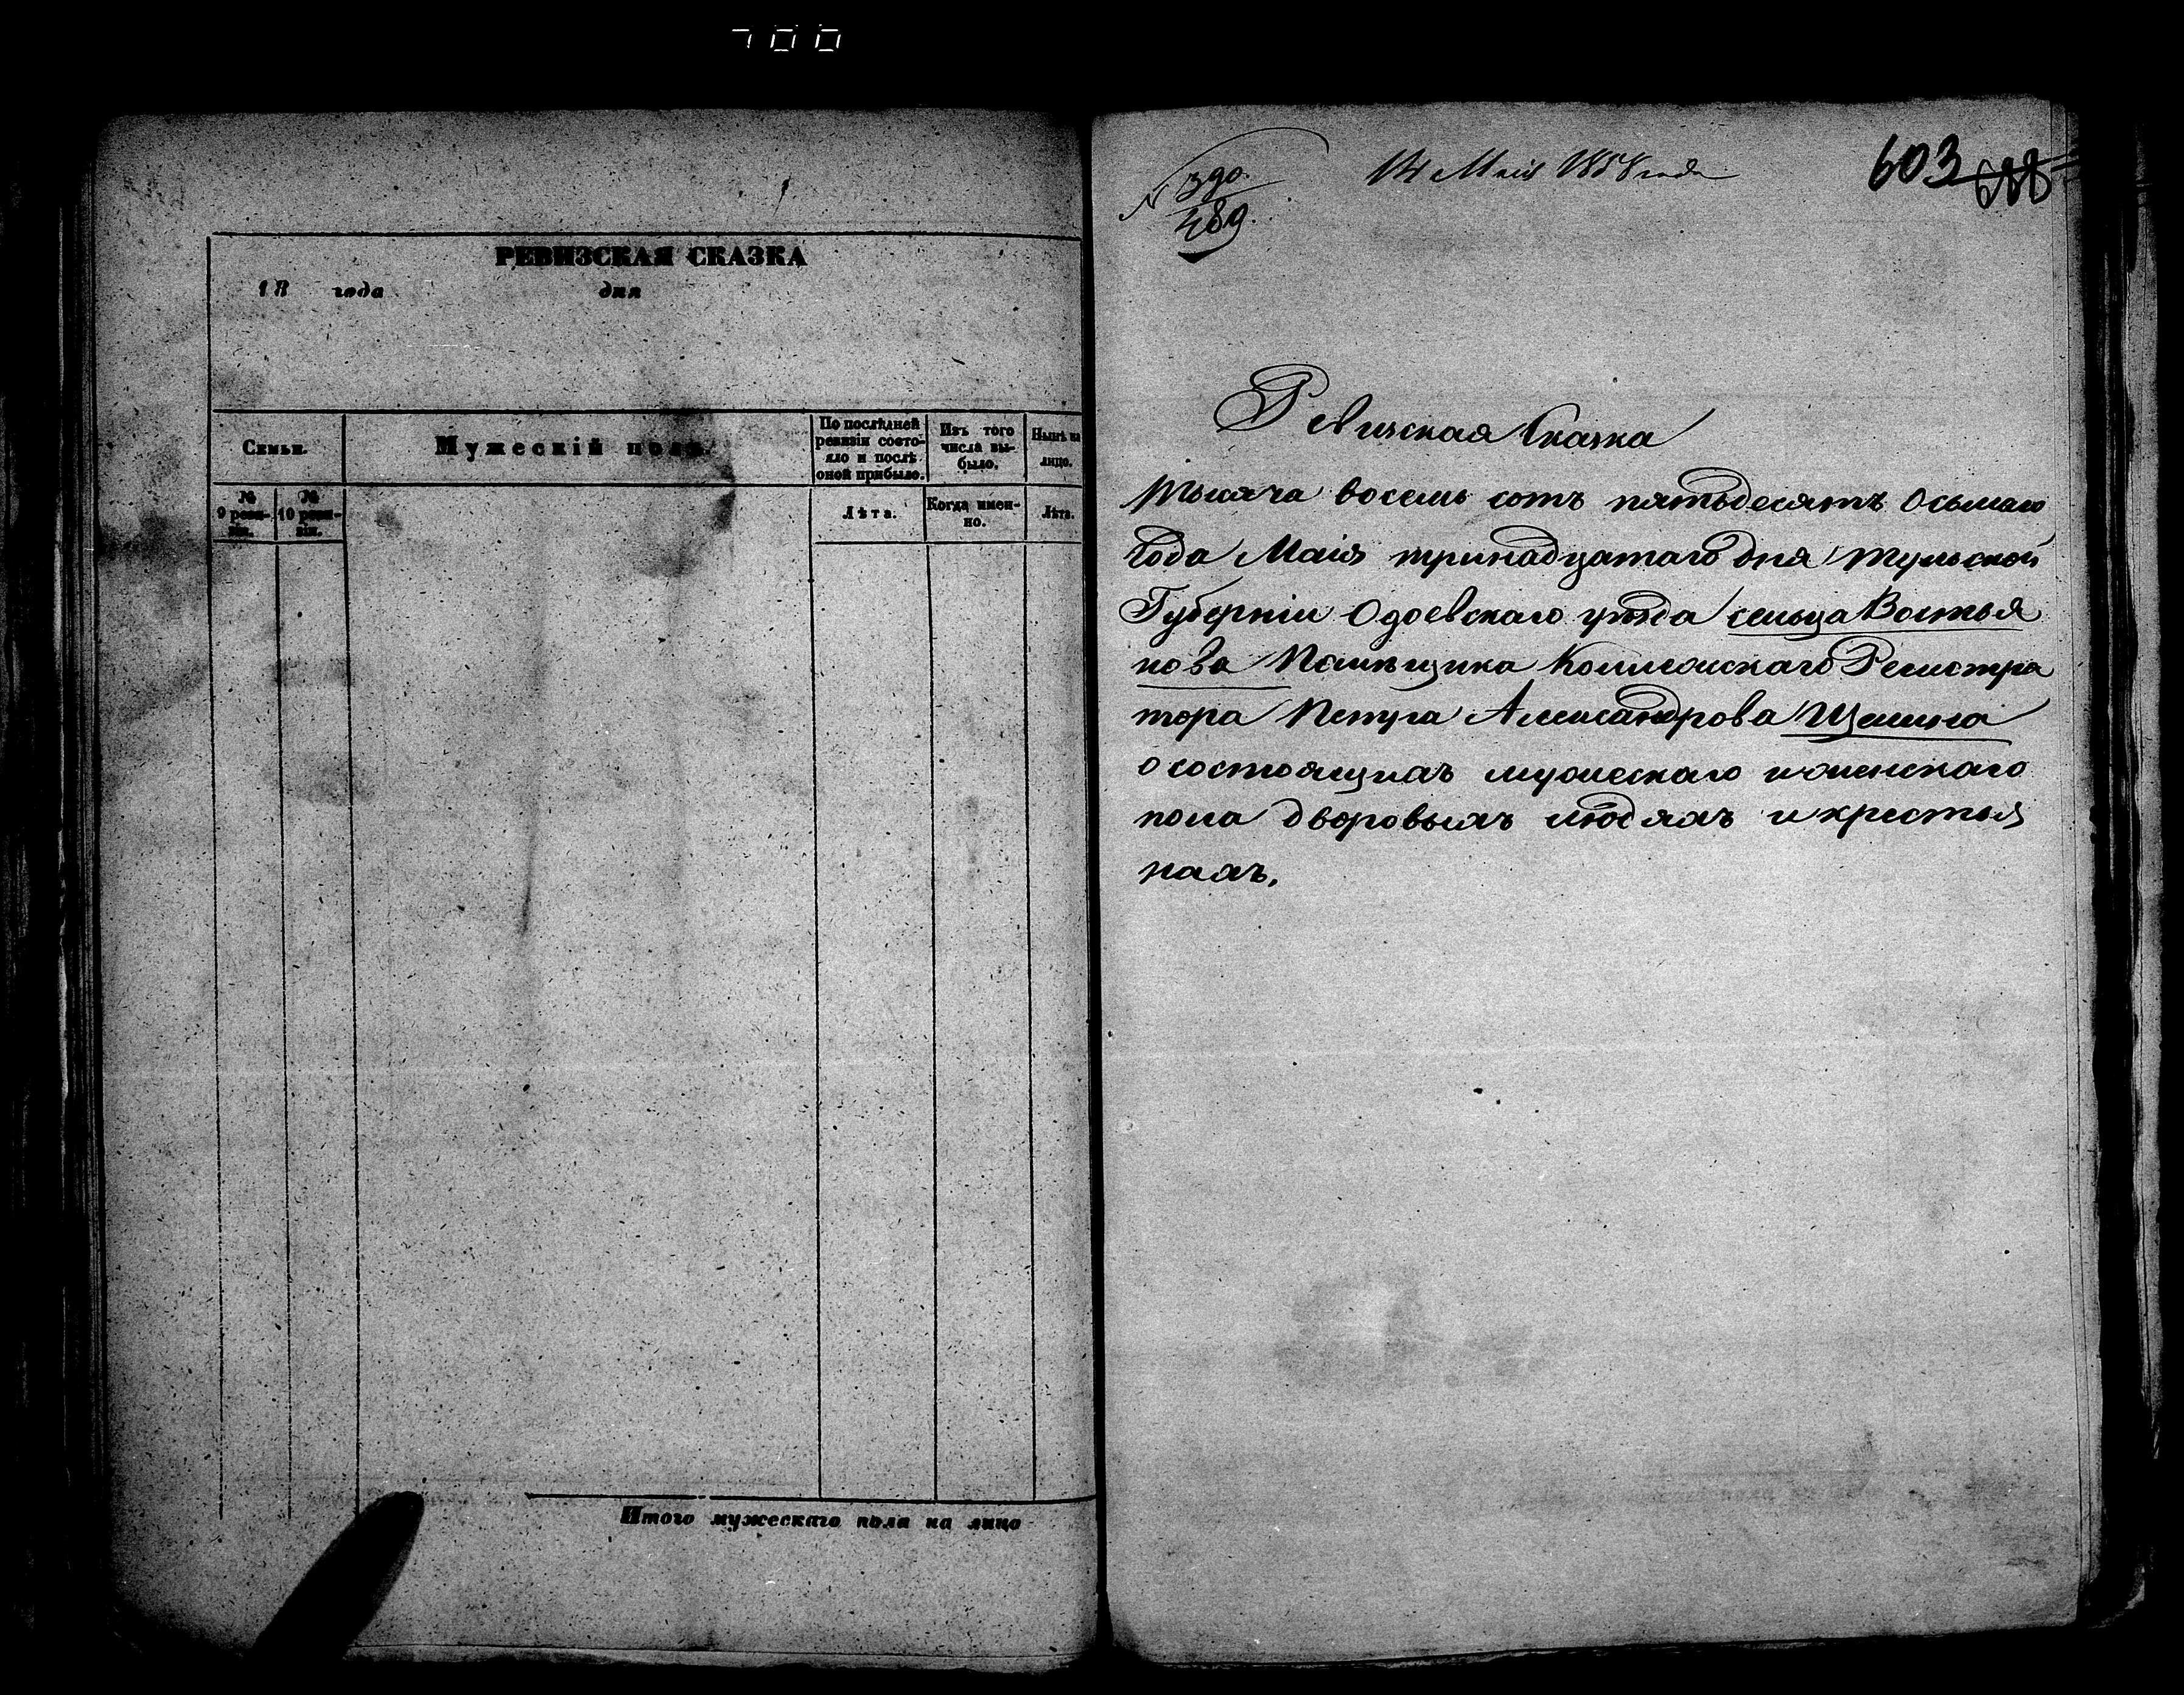 700
РЕВИЗСКАЯ СКАЗКА
18 года дня
Семьи.
Мужескій полъ.
По послѣдней ревизіи состояло и послѣ оной прибыло.
Изъ того числа выбыло.
Нынѣ на лицо.
№ 9 ревизіи.
№ 10 ревизіи.
Лѣта.
Когда именно.
Лѣта.
Итого мужескаго пола на лицо
N 390.
489.
14 Маія 1858 года
603 688
Ревизская Сказка
тысяча восемь сотъ пятьдесятъ осьмаго
года Маія тринадцатаго дня Тульской
Губерніи Одоевскаго уѣзда сельца Востья
нова Помѣщика Коллежскаго Регистра
тора Петра Александрова
о состоящихъ мужескаго и женскаго
пола дворовыхъ людяхъ и крестья
нахъ.